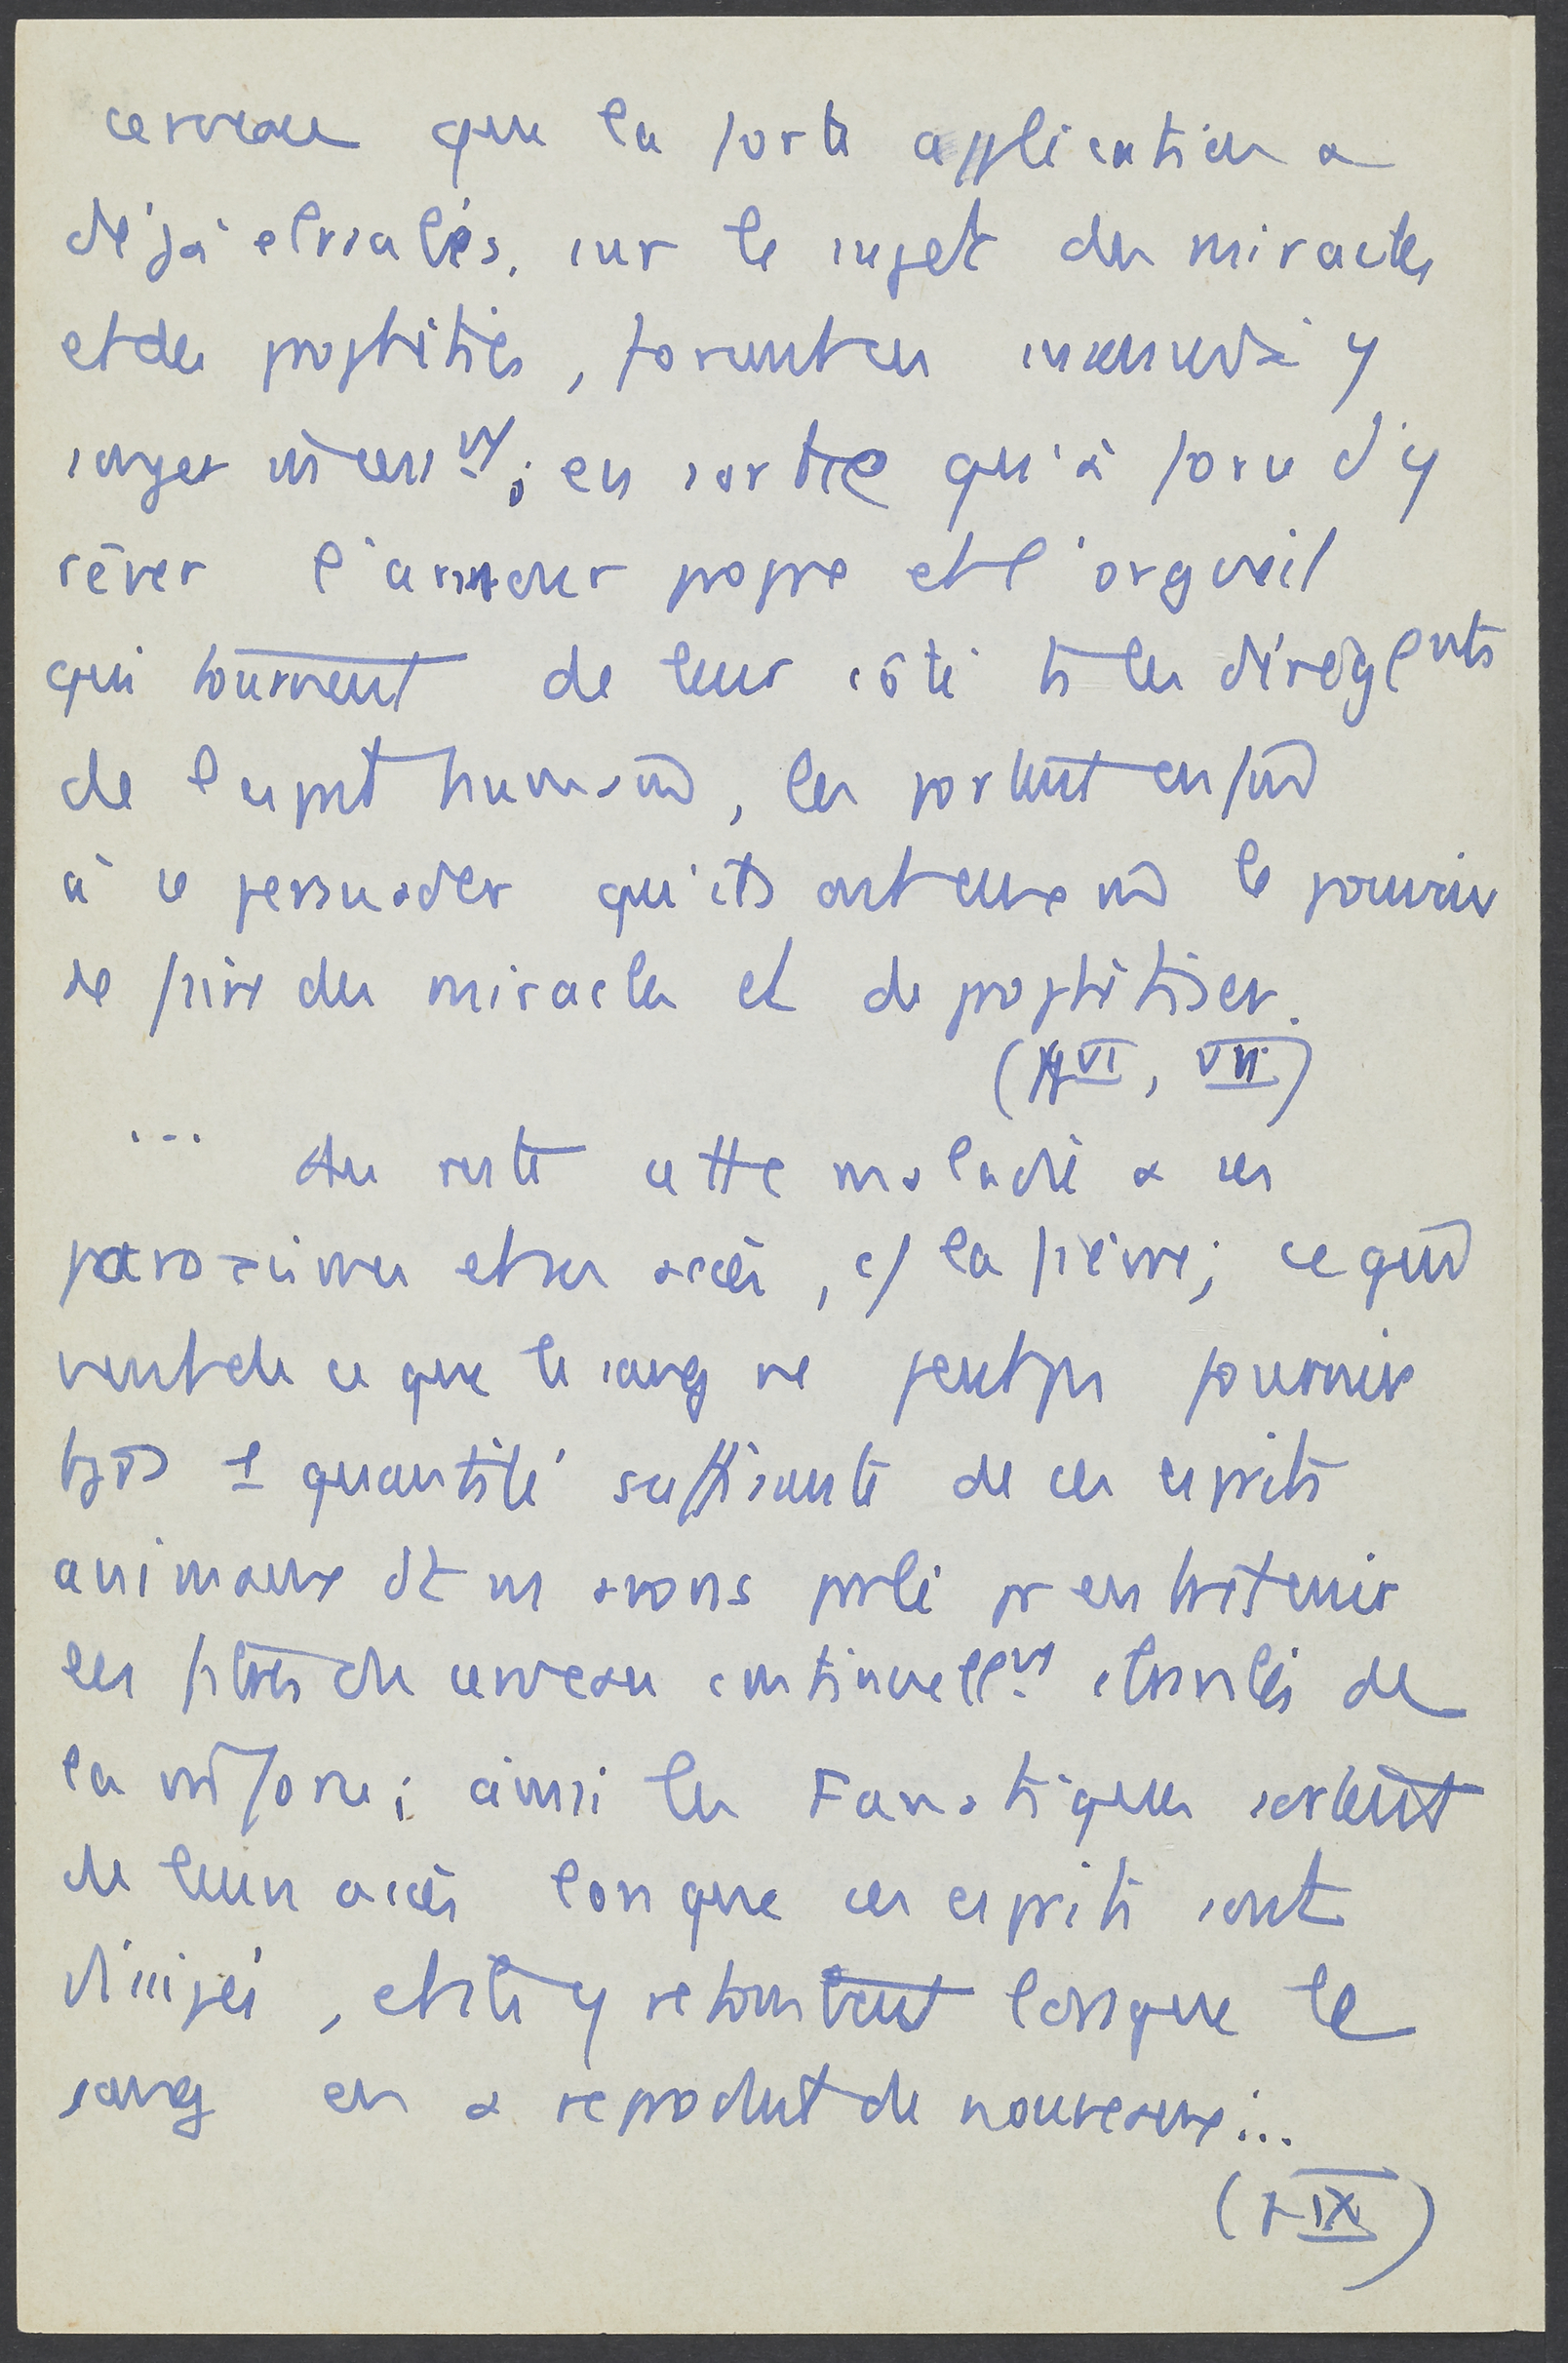 cerveau que la forte application a
déjà ébranlés, sur le sujet des miracles
et des prophéties, forcent en                 à y
songer         ; en sorte qu'à force d'y
rêver l'amour propre et l'orgueil
qui tournent de leur côté ts les déréglmts
de l'esprit humain, les portent enfin
à se persuader qu'ils ont eux         le pouvoir
de faire des miracles et de prophétiser.
(VI, VII)
... Au reste cette maladie a ses
paroxismes et ses accès, c/ la fièvre; ce qui
vient de ce que le sang ne peut pas fournir
tjrs 1 quantité suffisante de ces esprits
animaux dt ns avons parlé pr entretenir
les fibres du cerveau continuellmt ébranlés de
la m̂ force; ainsi les Fanatiques sortent
de leurs accès lorsque ces esprits sont
dissipés, et ils y retombent lorsque le
sang en a reproduit de nouveaux...
(p IX)